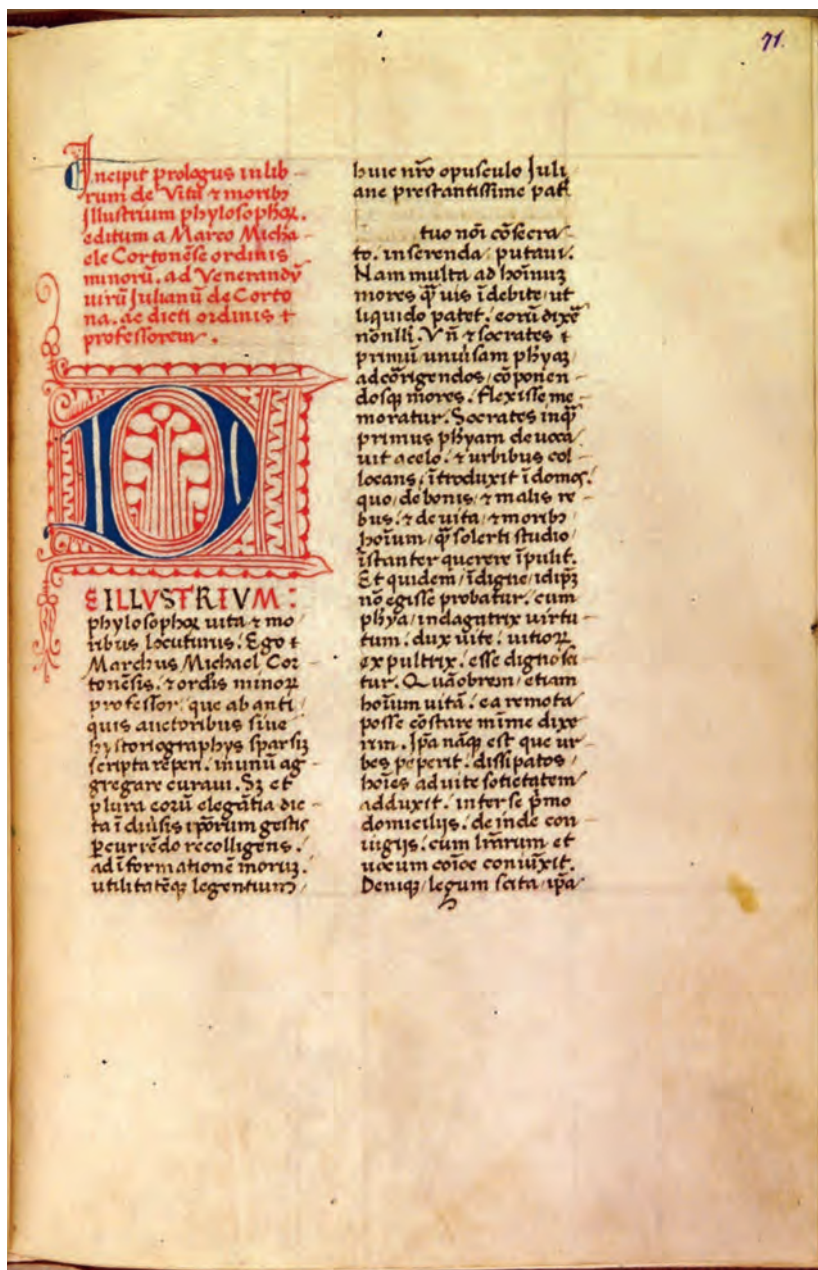 71.
Incipit prologus in lib-
rum de Vita ⁊ moribꝫ
Illustrium phylosophoꝝ.
editum a Marco Micha-
ele Cortonēse ordinis
minorū. ad Venerandū
uirū Julianū de Corto
na. ac dicti ordinis ⁊
professorem.
D
E ILLVSTRIVM:
phylosophoꝝ uita ⁊ mo
ribus locuturus. Ego ⁊
Marchus Michael Cor-
tonēsis. ⁊ ordis minoꝝ
professor. que ab anti
quis auctoribus siue
hystoriographys sparsiȝ
scripta reperi. in unū ag-
gregare curaui. Sȝ et
plura eorū elegātia dic-
ta ī diūsis ip̄orum gestis
ꝑcurrēdo recolligens.
ad īformationē moruȝ.
utilitatēqꝫ legentium
huic nr̄o opusculo Juli
ane prestantissime pat̄
tuo noī cōsecra
to. inserenda putaui.
Nam multa ad hoīnuȝ
mores q̄ uis īdebite ut
liquido patet. eorū dixē
nōnlli. Vn̄ ⁊ socrates ⁊
primū uniūsam phyaȝ
ad cōrigendos cōponen-
dosqꝫ mores. flexisse me-
moratur. Socrates inq̄
primus phyam deuoca
uit a celo. ⁊ urbibus col-
locans. ītroduxit ī domos.
quo de bonis ⁊ malis re-
bus. ⁊ de uita ⁊ moribꝫ
hoīum q̄ solerti studio
īstanter querere īpulit.
Et quidem īdigne idipȝ
nō egisse probatur. cum
phya indagatrix uirtu-
tum. dux uite. uitioꝝ
expultrix. esse dignosci
tur. Quāobrem etiam
hoīum uitā. ea remota
posse cōstare mīme dixe
rim. Ip̄a nāqꝫ est que ur-
bes peperit. dissipatos
hoīes ad uite sotietatem
adduxit. inter se p̄mo
domicilijs. deinde con-
iugijs. cum lr̄arum et
uocum coīoe coniūxit.
Deniqꝫ legum scita ip̄a